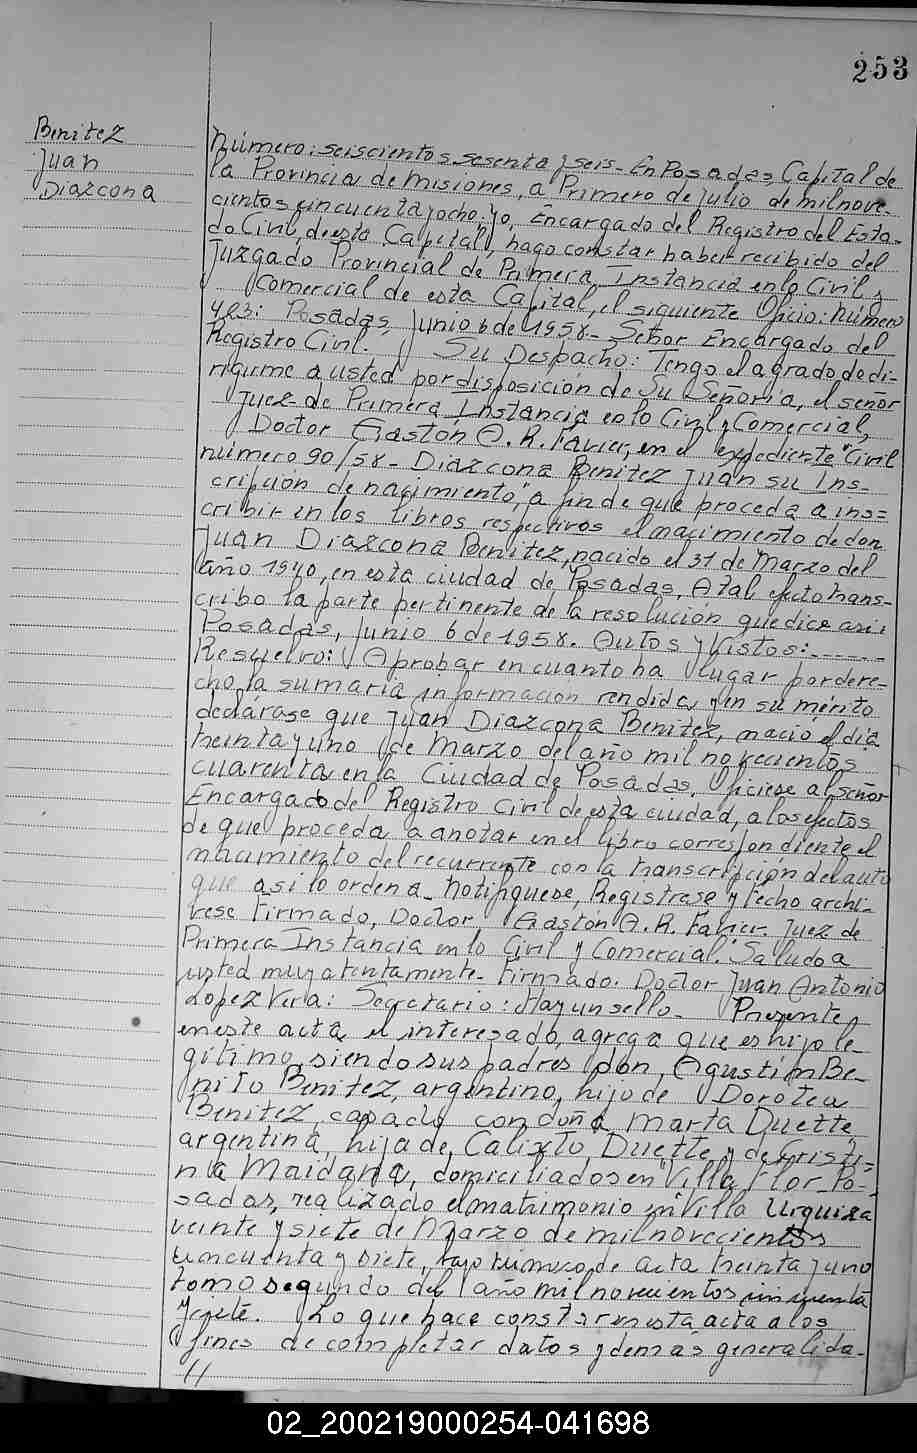 253
Benitez
Juan
Diazcona
Número: seiscientos sesenta y seis - En Posadas, Capital de
la Provincia de Misiones, a Primero de Julio de mil nove-
cientos cincuenta y ocho. Yo, Encargado del Registro del Esta-
do Civil, de esta Capital, hago constar haber recibido del
Juzgado Provincial de Primera Instancia en lo Civil y
Comercial de esta Capital, el siguiente Oficio: Número
423: Posadas, Junio 6 de 1958 - Señor Encargado del
Registro Civil. Su Despacho: Tengo el agrado de di-
rigirme a usted por disposición de Su Señoria, el señor
Juez de Primera Instancia en lo Civil y Comercial,
Doctor Gastón A. R. Favier, en el expediente "Civil
número 90/58 - Diazcona Benitez Juan su Ins-
cripción de nacimiento," a fin de que proceda a ins=
cribir en los libros respectivos el nacimiento de don
Juan Diazcona Benitez, nacido el 31 de Marzo del
año 1940, en esta ciudad de Posadas, A tal efecto trans-
cribo la parte pertinente de la resolución que dice asi:
Posadas, Junio 6 de 1958. Autos y Vistos: ------
Resuelvo: Aprobar en cuanto ha lugar por dere-
cho, la sumaria informacion rendida y en su mérito
declárase que Juan Diazcona Benitez, nació el dia
treinta y uno de Marzo del año mil novecientos
cuarenta en la Ciudad de Posadas. Oficiese al señor
Encargado del Registro Civil de esta ciudad, a los efectos
de que proceda a anotar en el libro correspondiente el
nacimiento del recurrente con la transcripción del auto
que asi lo ordena - Notifiquese, Registrese y fecho archi-
vese Firmado, Doctor Gastón A. R. Favier. Juez de
Primera Instancia en lo Civil y Comercial." Saludo a
usted muy atentamente - Firmado. Doctor Juan Antonio
Lopez Vera: Secretario: Hay un sello - Presente
en este acta el interesado, agrega que es hijo le-
gitimo, siendo sus padres don, Agustin Be-
nito Benitez, argentino, hijo de Dorotea
Benitez, casado con doña Marta Duette,
argentina, hija de, Calixto Duette y de Cristi=
na Maidana, domiciliados en Villa Flor - Po-
sadas, realizado el matrimonio en Villa Urquiza
veinte y siete de Marzo de mil novecientos
cincuenta y siete, bajo número de acta treinta y uno
tomo segundo del año mil novecientos cincuenta
y siete. Lo que hace constar en esta acta a los
fines de completar datos y demás generalida-
//
02_200219000254-041698